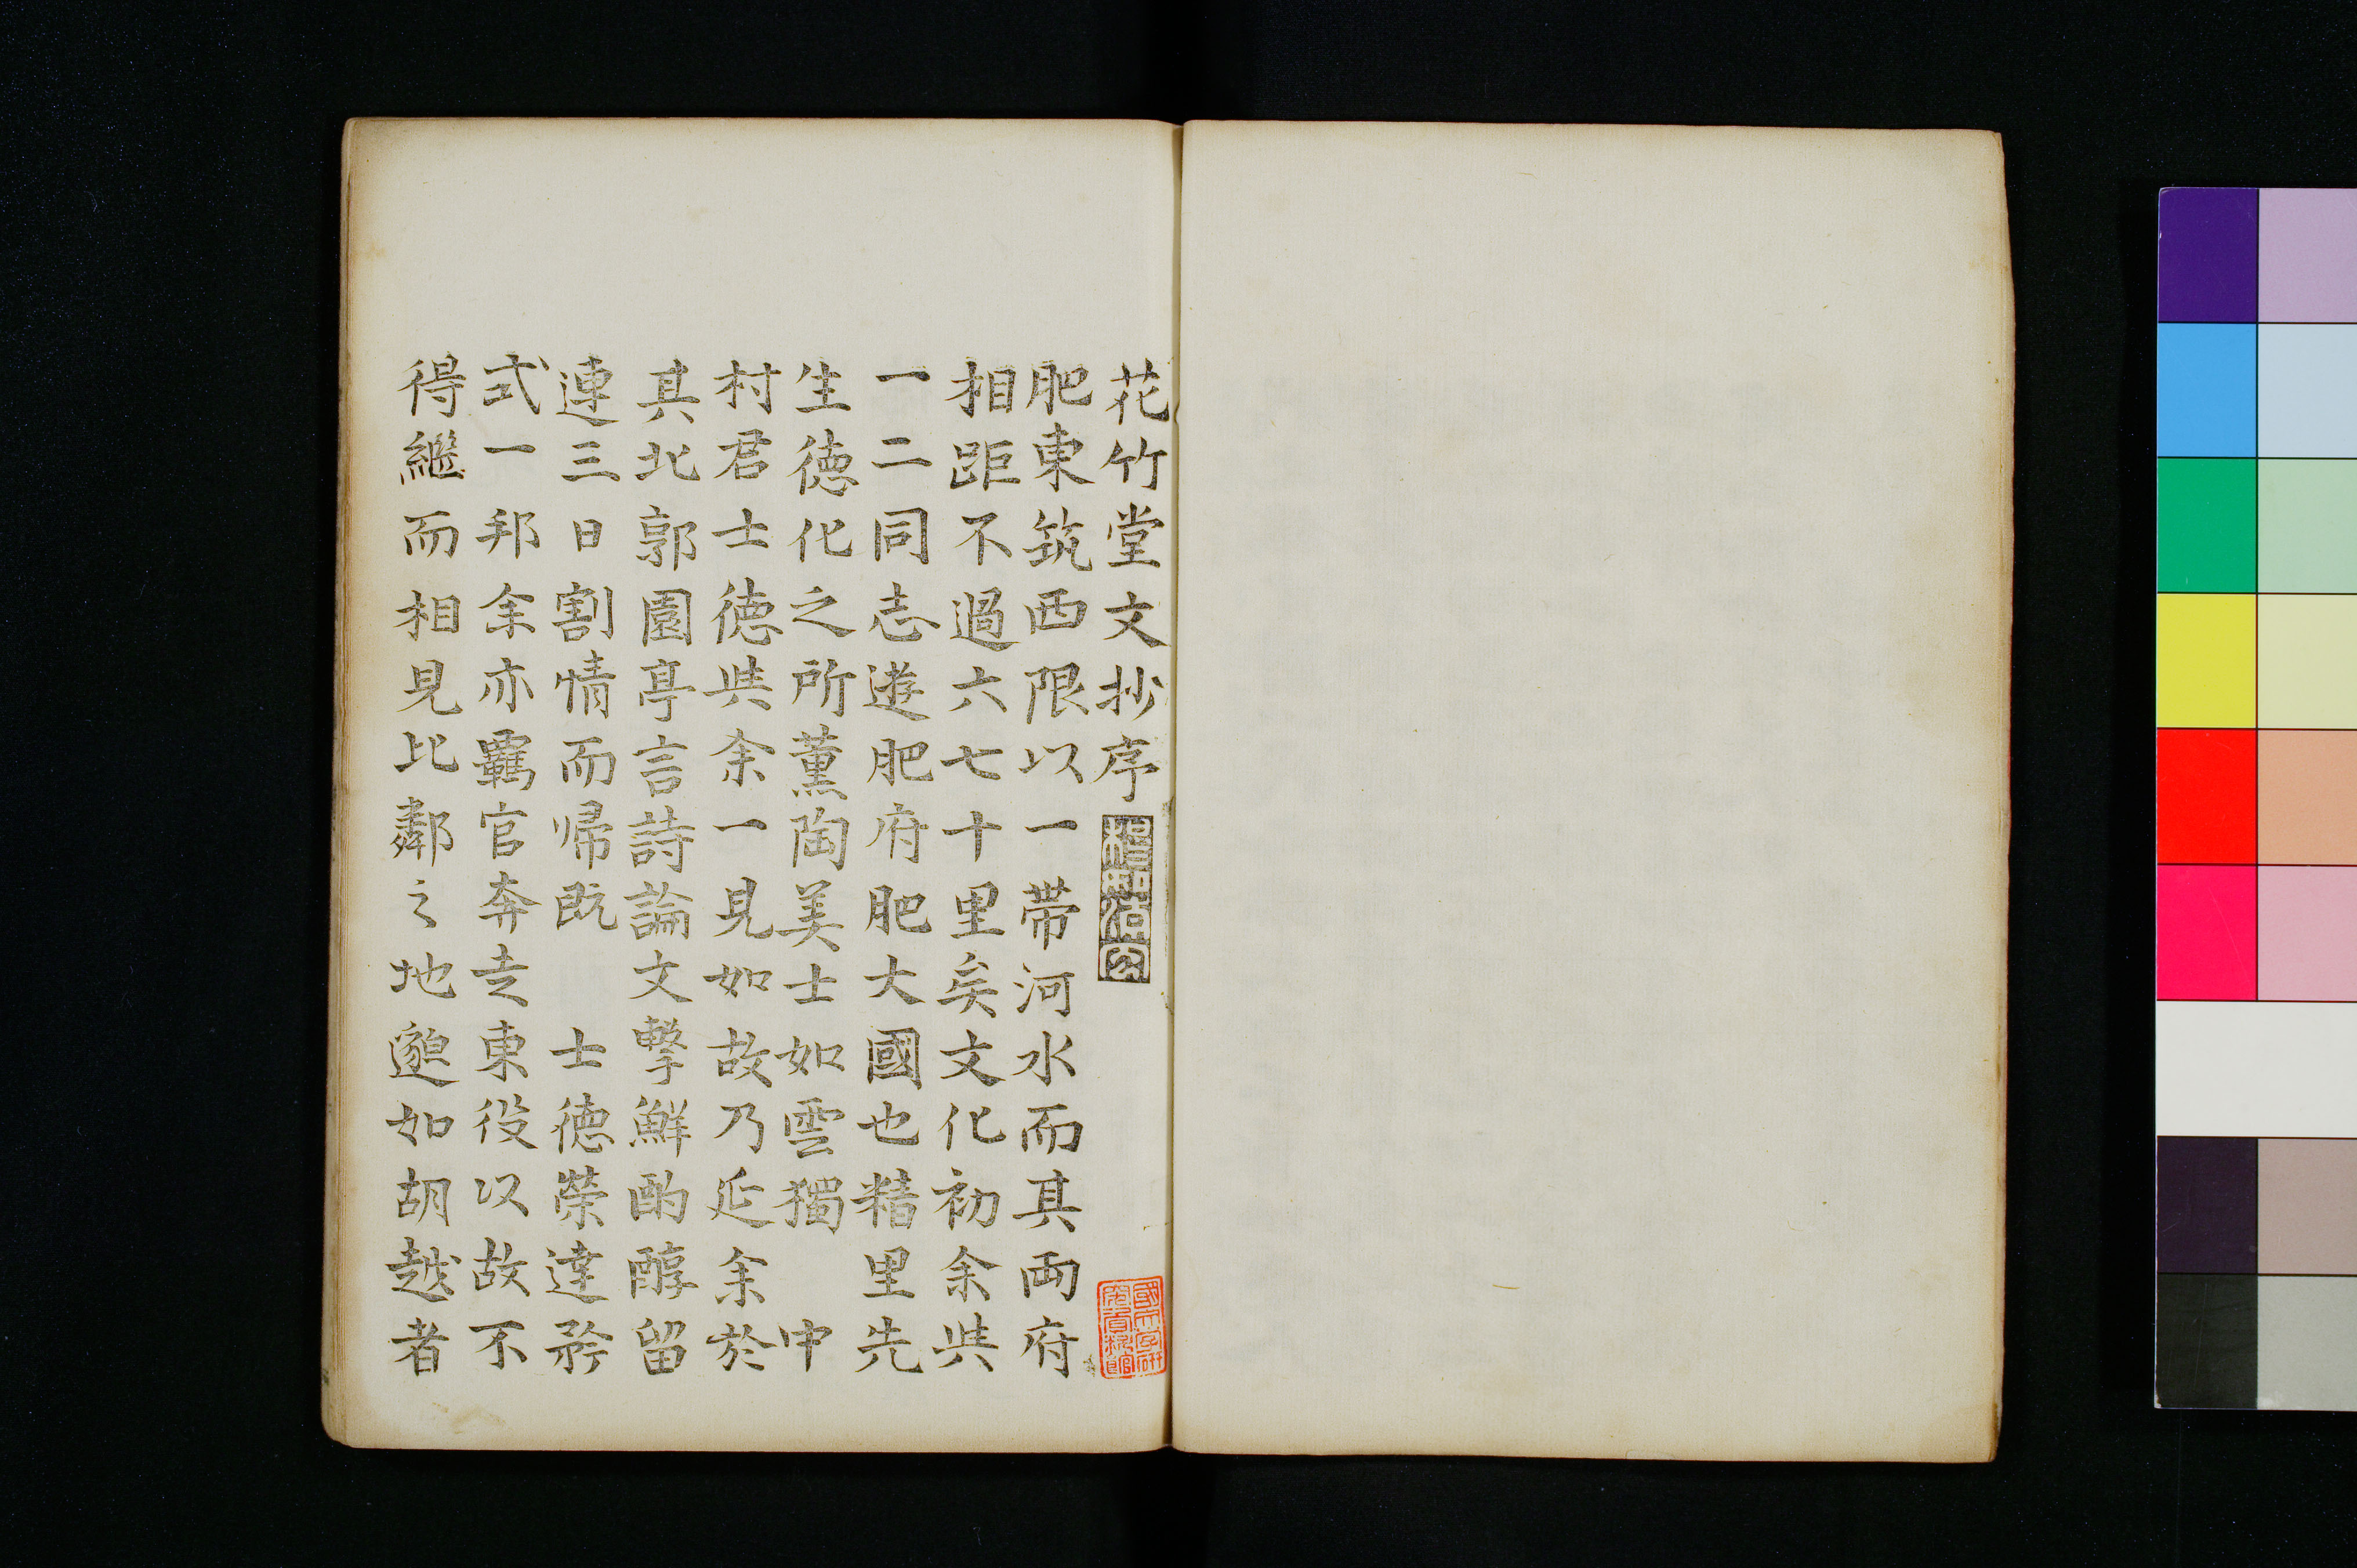 花竹堂文抄序
肥東筑西限以一帯河水而其両府
相距不過六七十里矣文化初余与
一二同志遊肥府肥大國也精里先
生徳化之所薫陶美士如雲獨 中
村君士徳与余一見如故乃延余於
其北郭園亭言詩論文擊鮮酌醇留
連三日割情而帰既 士徳榮達矜
式一邦余亦羈官奔走東役以故不
得繼而相見比鄰之地邈如胡越者